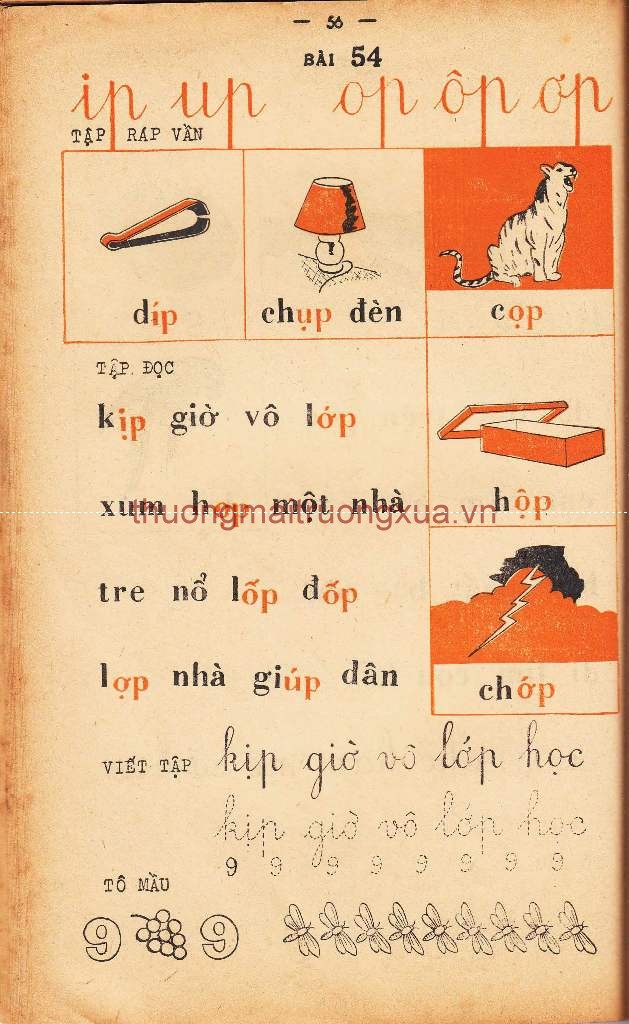 — 56 —
BÀI 54
ip up op ôp ơp
TẬP RÁP VẦN
díp
chụp đèn
cọp
TẬP ĐỌC
kịp giờ vô lớp
hộp
xum họp một nhà
thuongmaitruongxua.vn
tre nổ lốp đốp
chớp
lợp nhà giúp dân
VIẾT TẬP
kịp giờ vô lớp học
kịp giờ vô lớp học
9 9 9 9 9 9 9 9
TÔ MẦU
9 9